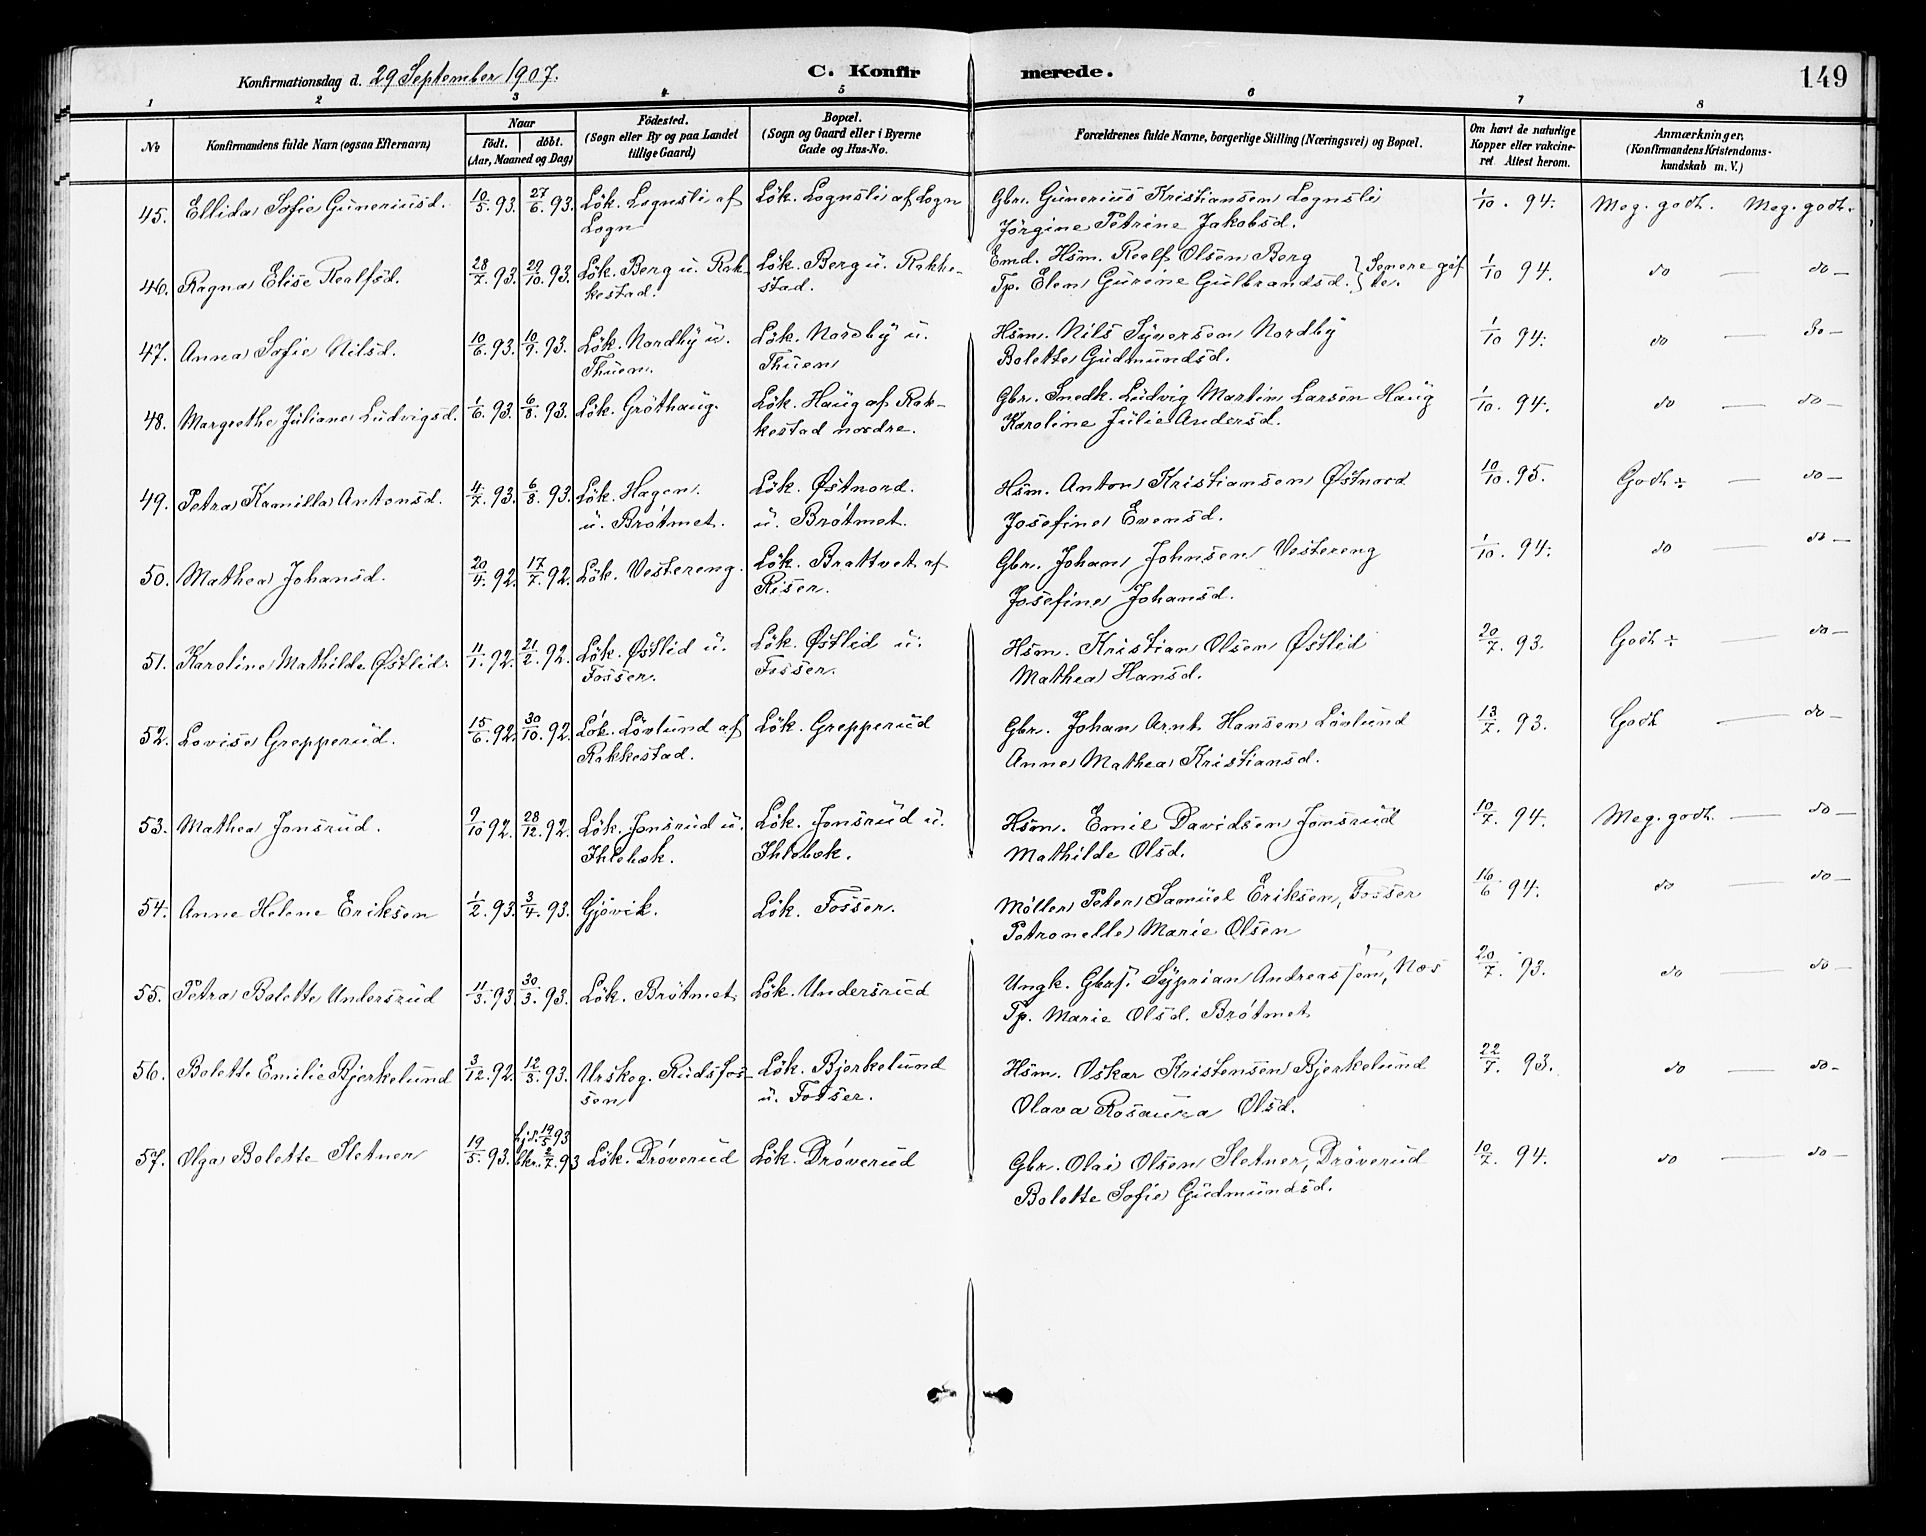 Konfirmationsdag d. 29 September 1907. C. Konfirmerede. 149
1 2 3 4 5 6 7 8
No Konfirmandens fulde Navn (ogsaa Efternavn) Naar født. døbt. (Aar, Maaned og Dag) Födested. (Sogn eller By og paa Landet tillige Gaard) Bopæl. (Sogn og Gaard eller i Byerne Gade og Hus-No. Forældrenes fulde Navne, borgerlige Stilling (Næringsvei) og Bopæl. Om havt de naturlige Kopper eller vakcineret Attest herom. Anmærkninger, (Konfirmandens Kristendomskundskab m. V.)
45. Ellida Sofie Guneriusd. 10/5. 93. 27/6. 93. Lök. Lognsli af Lök. Lognsli af Logn Gbr. Gunerius Kristiansen Lognsli 1/10. 94. Meg. godt. Meg. godt.
Logn Jörgine Petrine Jakobsd.
46. Ragna Elise Realfsd. 28/7. 93. 29/10. 93. Lök. Berg u. Rak- Lök. Berg u. Rakke- Emd. Hsm. Realf Olsen Berg } Senere gif 1/10 94. do — do —
kestad. stad. Tp. Elen Gurine Gulbrandsd. } te.
47. Anna Sofie Nilsd. 10/6. 93. 10/9. 93. Lök. Nordby u. Lök. Nordby u. Hsm. Nils Syversen Nordby 1/10 94. do — do —
Thuen. Thuen Bolette Gudmundsd.
48. Margrethe Juliane Ludvigsd. 1/6. 93. 6/8. 93. Lök. Gröthaug. Lök. Haug af Rak- Gbr. Snedk. Ludvig Martin Larsen Haug 1/10. 94. do — do —
kestad nordre. Karoline Julie Andersd.
49. Petra Kamilla Antonsd. 4/7. 93. 6/8. 93. Lök. Hagen. Lök. Østnord. Hsm. Anton Kristiansen Østnord 10/10. 95. Godt ÷ — do —
u. Brötmet. u. Brötmet. Josefine Evensd.
50. Mathea Johansd. 20/4. 92. 17/7. 92. Lök. Vestereng. Lök. Brattvet af Gbr. Johan Johnsen Vestereng 1/10. 94. do — do —
Riser. Josefine Johansd.
51. Karoline Mathilde Østlid. 11/1. 92. 21/2. 92. Lök. Østlid u. Lök. Østlid u. Hsm. Kristian Olsen Østlid 20/7. 93. Godt ÷ — do —
Fosser. Fosser. Mathea Hansd.
52. Lovise Grepperud. 15/6. 92. 30/10. 92. Lök. Lövlund af Lök. Grepperud Gbr. Johan Arnt Hansen Lövlund 13/7. 93. Godt — do —
Rakkestad. Anne Mathea Kristiansd.
53. Mathea Jonsrud. 9/10 92. 28/12. 92. Lök. Jonsrud u. Lök. Jonsrud u. Hsm. Emil Davidsen Jonsrud 10/7. 94. Meg. godt. — do —
Ihlebæk. Ihlebæk. Mathilde Olsd.
54. Anne Helene Eriksen 1/2. 93. 3/4. 93. Gjövik. Lök. Fosser. Möller Peter Samuel Eriksen, Fosser 16/6 94. do — do —
Petronelle Marie Olsen
55. Petra Bolette Undersrud 11/3. 93. 30/3. 93. Lök. Brötmet. Lök. Undersrud Ungk. Gbrs. Syprian Andreassen, Næs 20/7. 93. do — do —
Tp. Marie Olsd. Brötmet
56. Bolette Emilie Bjerkelund 3/12. 92. 12/3. 93. Urskog. Rudsfos- Lök. Bjerkelund Hsm. Oskar Kristensen Bjerkelund 22/7. 93. do — do —
sen u. Fosser. Olava Rosaura Olsd.
57. Olga Bolette Sletner 19/5. 93. hjd. 19/5 93 bkr. 2/7. 93 Lök. Dröverud Lök. Dröverud Gbr. Olai Olsen Sletner, Dröverud 10/7. 94. do — do —
Bolette Sofie Gudmundsd.